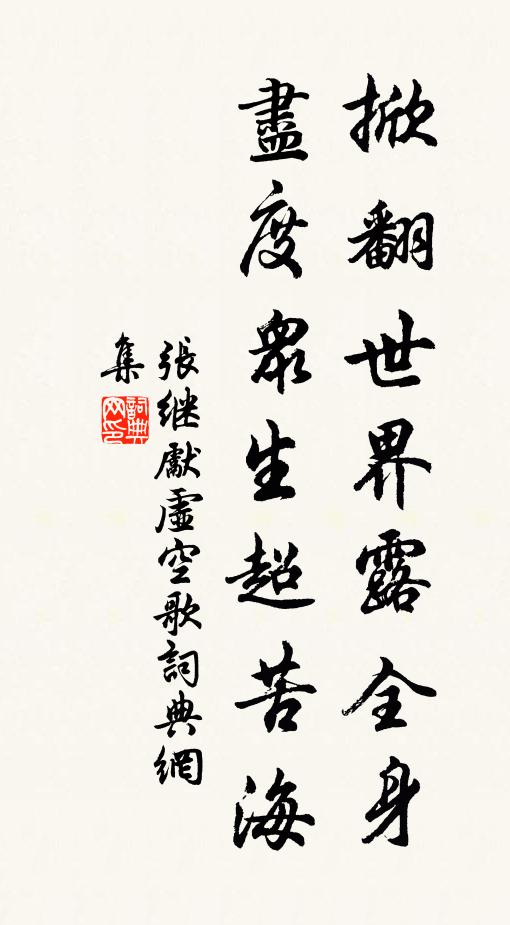 掀翻世界露全身
盡度眾生超苦海
張继獻虛空歌詞典網
集
詞典网印